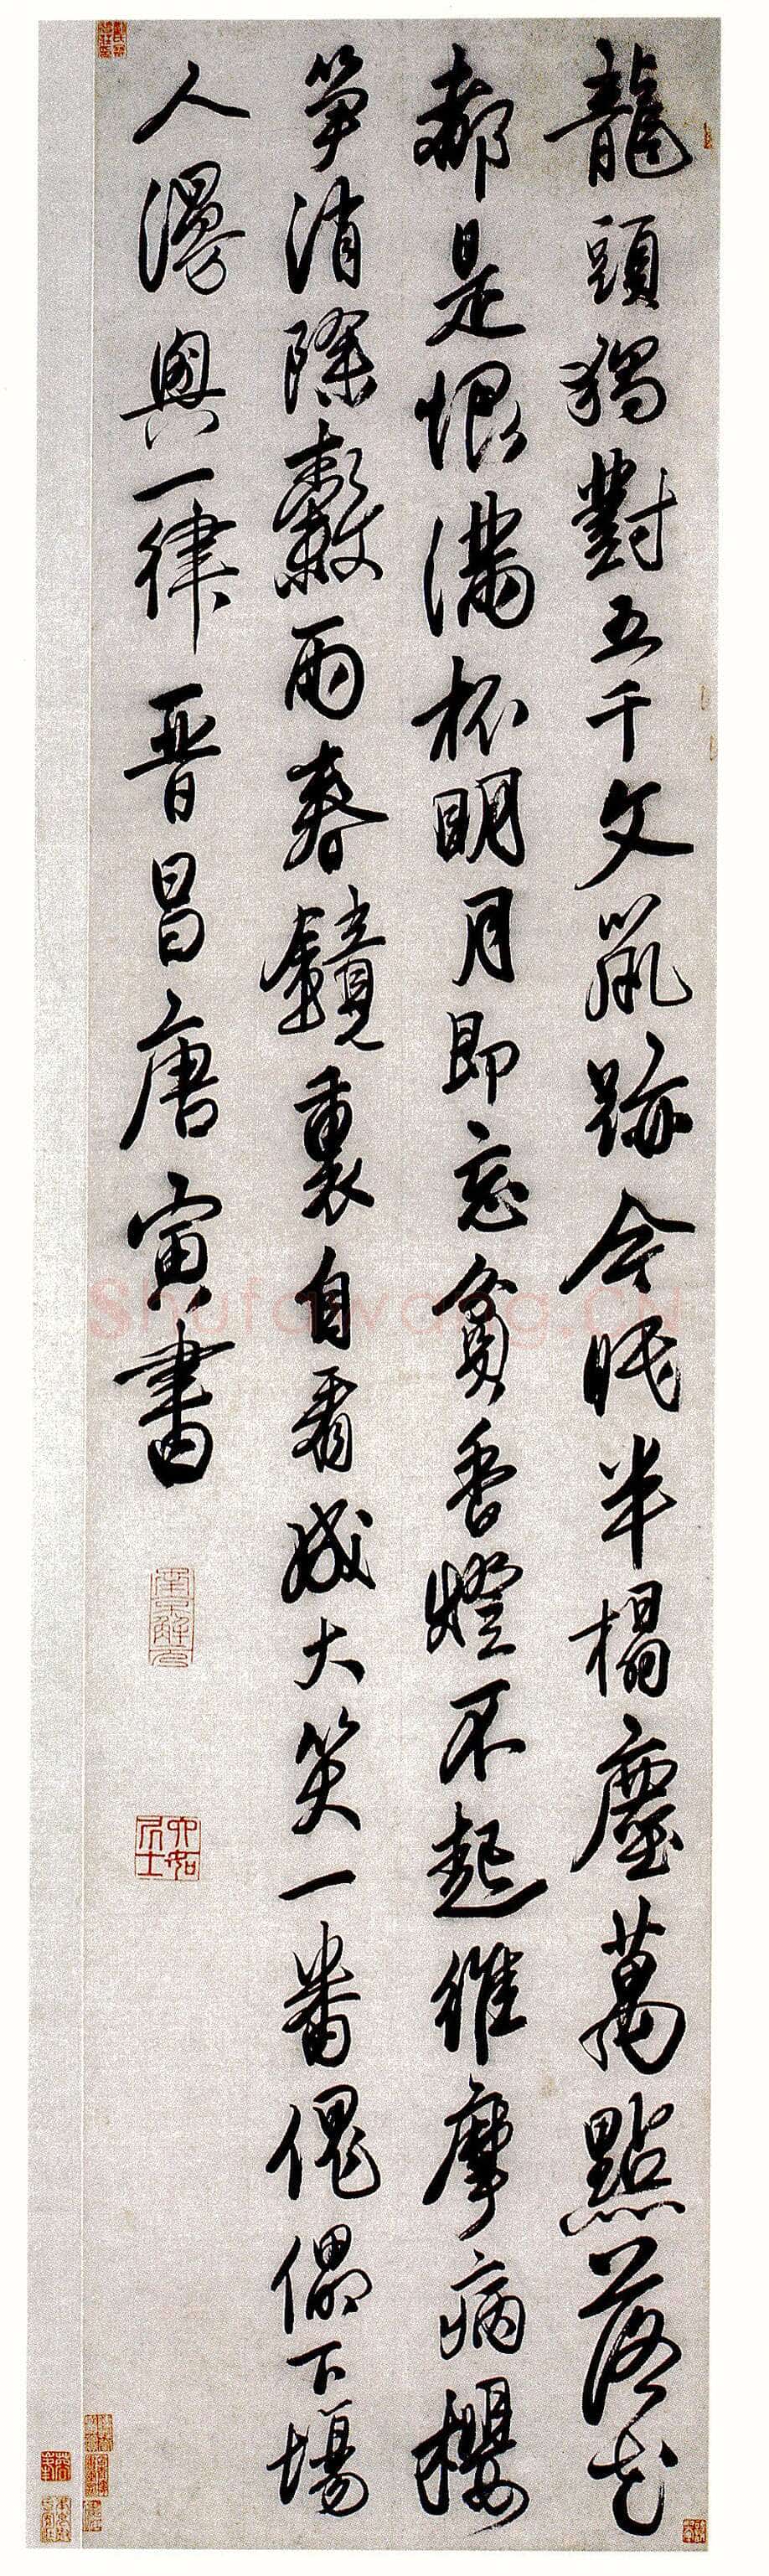 龍頭獨對五千文鼠跡今眠半榻塵萬點落花
都是恨滿杯明月即忘貧香燈不起維摩病櫻
筍消除穀雨春鏡裏自看成大笑一番傀儡下場
人漫興一律晉昌唐寅書
南京解元
六如居士
Shufawang.CN